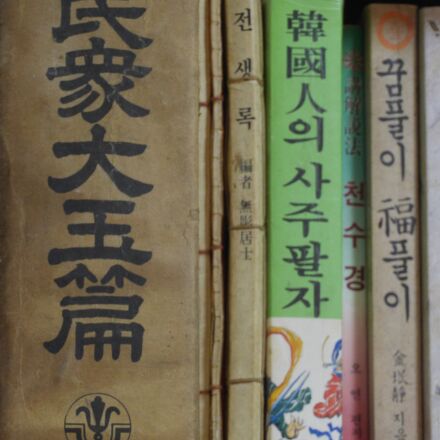 民衆大玉篇
전생록
編者 無影居士
韓國人의 사주팔자
解説法
천수경
꿈풀이 福풀이
金
静 지음